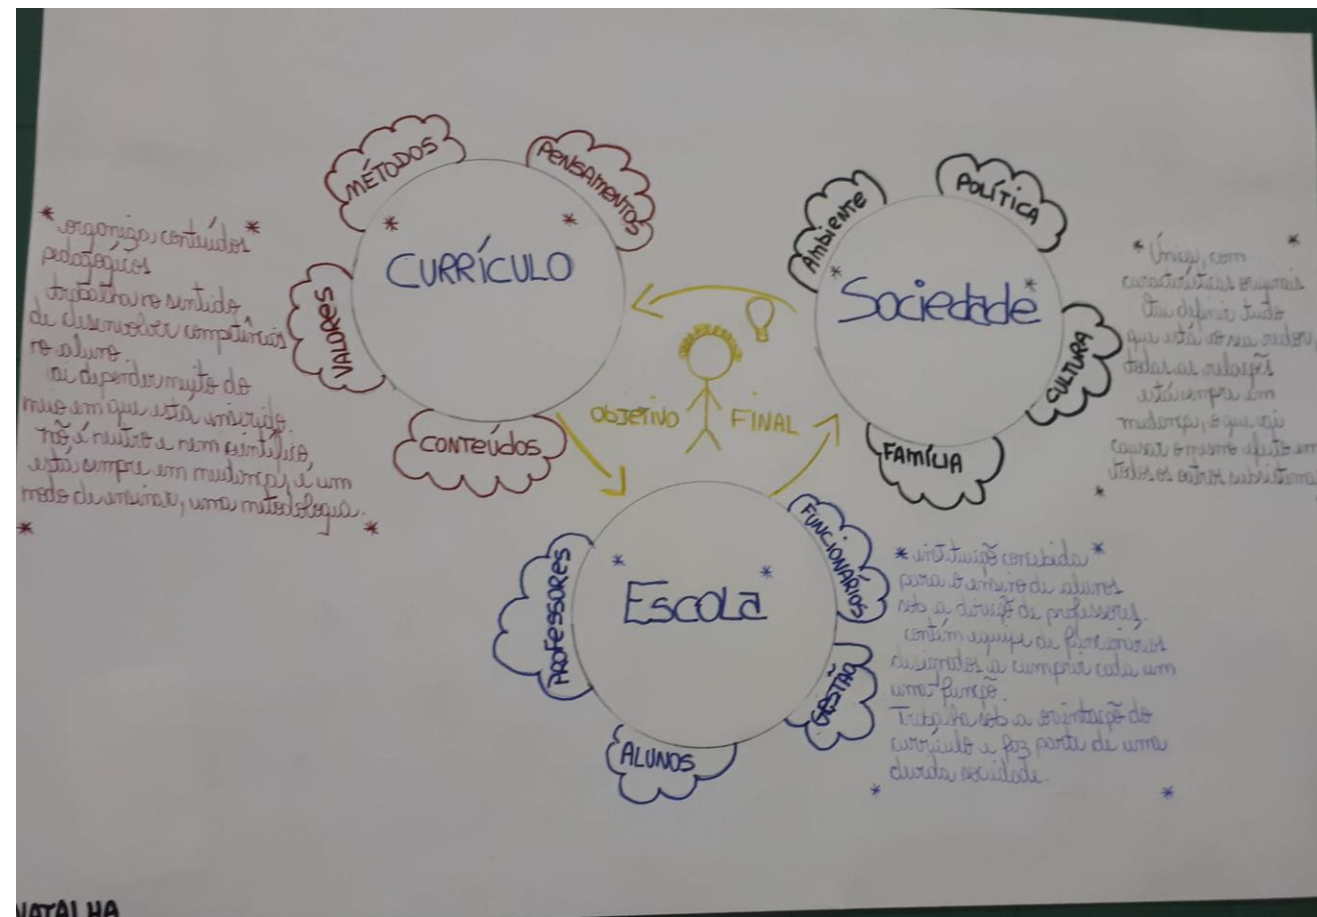 MÉTODOS
PENSAMENTOS
VALORES
CONTEÚDOS
CURRÍCULO
* organiza conteúdos *
pedagógicos
trabalha no sentido
de desenvolver competências
no aluno.
ai depender muito do
meio em que está inserido.
não é neutro e nem científico,
está sempre em mudança, é um
modo de ensinar, uma metodologia.
Ambiente
POLÍTICA
CULTURA
FAMÍLIA
Sociedade
* Única, com
características originais
definir tudo
que está ao seu redor,
todas as relações
está sempre em
mudança, o que vai
causar o mesmo efeito em
todos os outros subsistema
OBJETIVO FINAL
PROFESSORES
FUNCIONÁRIOS
GESTÃO
ALUNOS
Escola
* instituição concebida *
para o ensino de alunos
sob a direção de professores.
contém equipe de funcionários
designados a cumprir cada um
uma função.
Trabalha sob a orientação do
currículo e faz parte de uma
sociedade.
NATALHA